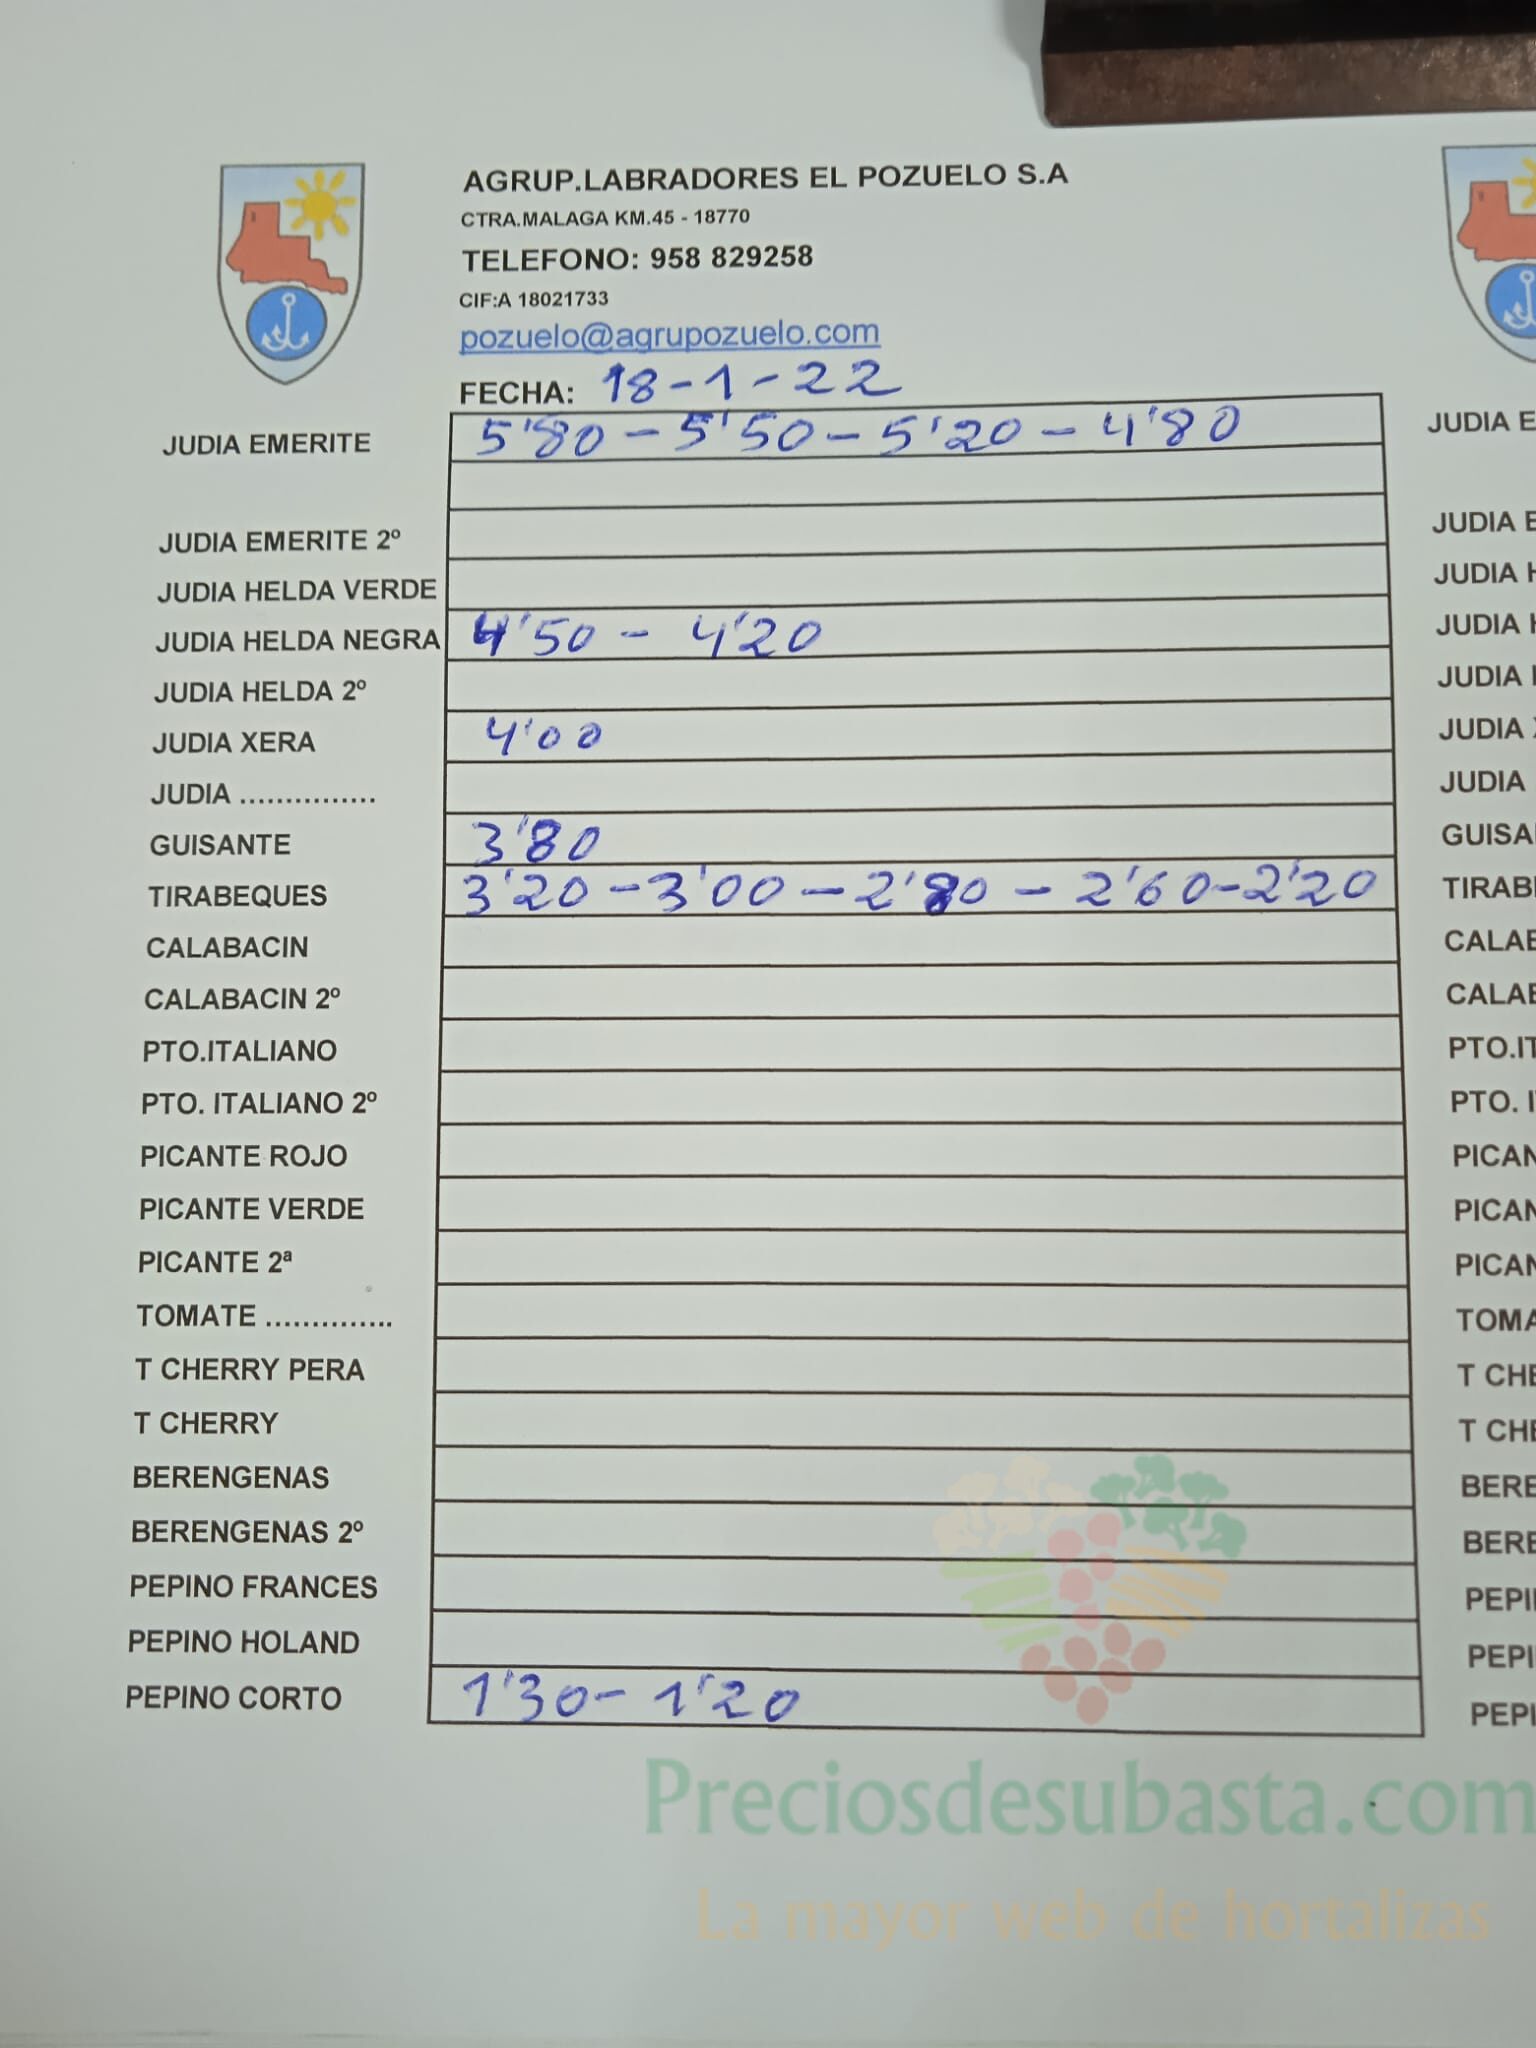 AGRUP.LABRADORES EL POZUELO S.A
CTRA.MALAGA KM.45 - 18770
TELEFONO: 958 829258
CIF:A 18021733
pozuelo@agrupozuelo.com
FECHA: 18-1-22
JUDIA EMERITE 5'80 - 5'50 - 5'20 - 4'80 JUDIA E
JUDIA EMERITE 2º JUDIA E
JUDIA HELDA VERDE JUDIA H
JUDIA HELDA NEGRA 4'50 - 4'20 JUDIA H
JUDIA HELDA 2º JUDIA
JUDIA XERA 4'00 JUDIA
JUDIA ............... JUDIA
GUISANTE 3'80 GUISA
TIRABEQUES 3'20 - 3'00 - 2'80 - 2'60 - 2'20 TIRAB
CALABACIN CALAB
CALABACIN 2º CALAB
PTO.ITALIANO PTO.IT
PTO. ITALIANO 2º PTO. I
PICANTE ROJO PICAN
PICANTE VERDE PICAN
PICANTE 2ª PICAN
TOMATE .............. TOMA
T CHERRY PERA T CHE
T CHERRY T CHE
BERENGENAS BERE
BERENGENAS 2º BERE
PEPINO FRANCES PEPI
PEPINO HOLAND PEPI
PEPINO CORTO 1'30 - 1'20 PEPI
Preciosdesubasta.com
La mayor web de hortalizas